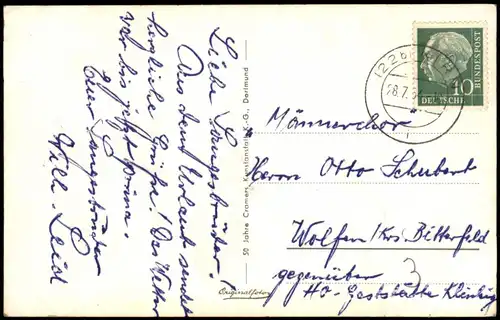 Liebe Sangesbrüder!
Aus dem Urlaub sendet
herzliche Grüße! Das Wetter
war bis jetzt prima.
Euer Sangesbruder
Willi
50 Jahre Cramers Kunstanstalt K.-G., Dortmund
Originalfoto
(22b)
28.7.
10
DEUTSCHE
BUNDESPOST
Männerchor
Herrn Otto Schubert
Wolfen/Krs. Bitterfeld
gegenüber
HO-Gaststätte
3